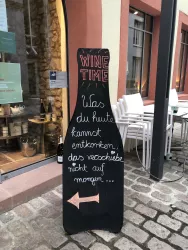 WINE
TIME
Was
du heute
kannst
entkorken,
das verschiebe
nicht auf
morgen...